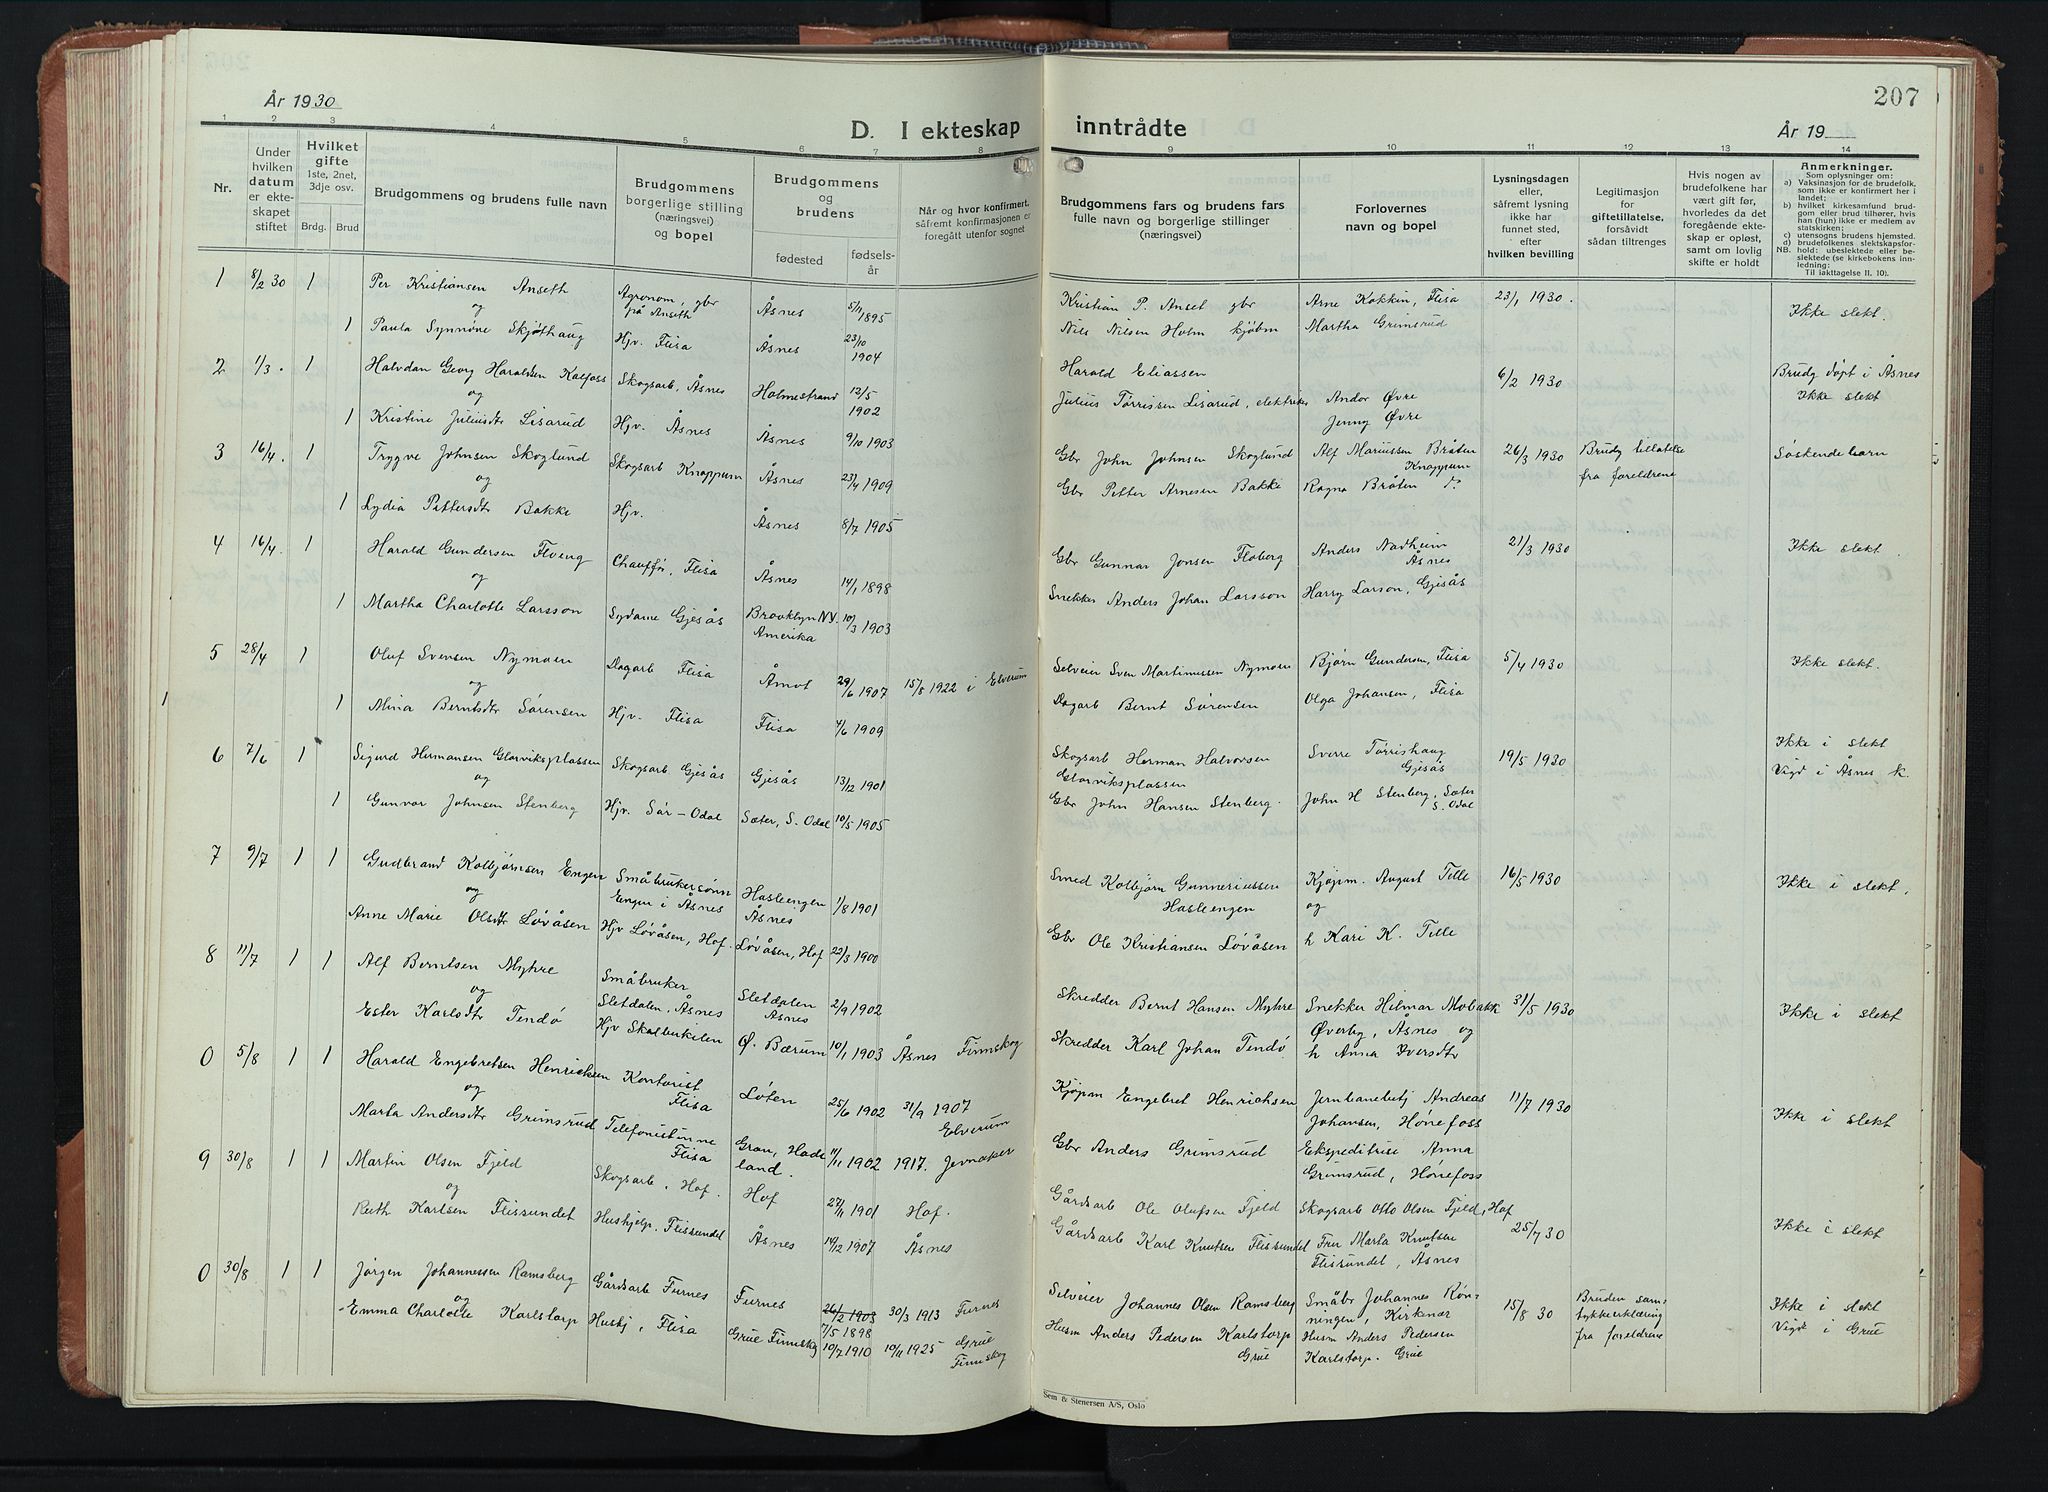 År 1930
D. I ekteskap inntrådte
År 19
207
1 2 3 4 5 6 7 8 9 10 11 12 13 14
Nr.
Under hvilken datum er ekteskapet stiftet
Hvilket gifte 1ste, 2net, 3dje osv.
Brdg. Brud
Brudgommens og brudens fulle navn
Brudgommens borgerlige stilling (næringsvei) og bopel
Brudgommens og brudens
fødested
fødselsår
Når og hvor konfirmert, såfremt konfirmasjonen er foregått utenfor sognet
Brudgommens fars og brudens fars fulle navn og borgerlige stillinger (næringsvei)
Forlovernes navn og bopel
Lysningsdagen eller, såfremt lysning ikke har funnet sted, efter hvilken bevilling
Legitimasjon for giftetillatelse, forsåvidt sådan tiltrenges
Hvis nogen av brudefolkene har vært gift før, hvorledes da det foregående ekteskap er opløst, samt om lovlig skifte er holdt
Anmerkninger.
Som oplysninger om:
a) Vaksinasjon for de brudefolk, som ikke er konfirmert her i landet;
b) hvilket kirkesamfund brudgom eller brud tilhører, hvis han (hun) ikke er medlem av statskirken;
c) utensogns brudens hjemsted.
d) brudefolkenes slektskapsforhold: ubeslektede eller beslektede (se kirkebokens innledning:
NB.
Til iakttagelse II, 10).
1 8/2 30 1 Per Kristiansen Anseth Agronom, gbr på Anseth Åsnes 5/11 1895 Kristian P. Anset gbr Arne Kokkin, Flisa 23/1 1930. Ikke slekt.
og
1 Paula Synnøve Skjøthaug Hjv. Flisa Åsnes 23/10 1904 Nils Nilsen Holm kjøbm Martha Grimsrud
2 1/3. 1 Halvdan Georg Haraldsen Kalfoss Skogsarb, Åsnes Holmestrand 12/5 1902 Harald Eliassen 6/2 1930 Brudg døpt i Åsnes
og
1 Kristine Juliusdtr Lisarud Hjv. Åsnes Åsnes 9/10 1903 Julius Tørrissen Lisarud, elektriker Andor Øvre Jenny Øvre Ikke slekt
3 16/4. 1 Trygve Johnsen Skoglund Skogsarb Knappum Åsnes 23/4 1909 Gbr John Johnsen Skoglund Alf Mariussen Bråten Knappum 26/3 1930 Brudg tillatelse fra foreldrene Søskendebarn
og
1 Lydia Pettersdtr Bakke Hjv. Åsnes 8/7 1905 Gbr Petter Arnesen Bakke Ragna Bråten do
4 16/4. 1 Harald Gundersen Floeng Chauffør, Flisa Åsnes 14/1 1898 Gbr Gunnar Jonsen Floberg Anders Nadheim Åsnes 21/3 1930 Ikke slekt.
og
1 Martha Charlotte Larsson Sydame Gjesås Brooklyn N.Y. Amerika 10/3 1903 Snekker Anders Johan Larsson Harry Larson, Gjesås
5 28/4 1 Oluf Svensen Nymoen Dagarb Flisa Åmot 29/6 1907 15/8 1922 i Elverum Selveier Sven Martinussen Nymoen Bjørn Gundersen, Flisa 5/4 1930 Ikke slekt.
og
1 Mina Berntsdtr Sørensen Hjv. Flisa Flisa 4/6 1909 Dagarb Bernt Sørensen Olga Johansen, Flisa
6 7/6 1 Sigurd Hermansen Glorviksplassen Skogsarb Gjesås Gjesås 13/12 1901 Skogsarb Herman Halvorsen Glorviksplassen Sverre Tørrishaug Gjesås 19/5 1930 Ikke i slekt Vigd i Åsnes k.
og
1 Gunvor Johnsen Stenberg Hjv. Sør-Odal Sæter, S. Odal 10/5 1905 Gbr John Hansen Stenberg. John H Stenberg, Sæter S. Odal
7 9/7 1 1 Gudbrand Kolbjørnsen Engen Småbrukersønn Engen i Åsnes Hasleengen Åsnes 1/8 1901 Smed Kolbjørn Gunneriussen Hasleengen Kjøpm. August Telle 16/5 1930 Ikke i slekt.
og og
Anne Marie Olsdtr Løvåsen Hjv Løvåsen, Hof. Løvåsen, Hof 22/3 1900 Gbr Ole Kristiansen Løvåsen h Kari K. Telle
8 11/7 1 1 Alf Berntsen Myhre Småbruker Sletdalen, Åsnes Sletdalen Åsnes 2/9 1902 Skredder Bernt Hansen Myhre Snekker Hilmar Mobakk 31/5 1930 Ikke i slekt
og Øverby, Åsnes og
Ester Karlsdtr Tendø Hjv Skalbukilen Ø. Bærum 10/1 1903 Åsnes Finnskog Skredder Karl Johan Tendø h Anna Iversdtr
0 5/8 1 1 Harald Engebretsen Henricksen Kontorist Flisa Løten 25/6 1902 31/9 1907 Elverum Kjøpm Engebret Henrichsen Jernbanebetj Andreas Johansen, Hønefoss 11/7 1930 Ikke i slekt
og
Marta Andersdtr Grimsrud Telefonistinne Flisa Gran, Hadeland. 11/11 1902 1917. Jevnaker Gbr Anders Grimsrud Ekspeditrise Anna Grimsrud, Hønefoss
9 30/8 1 1 Martin Olsen Fjeld Skogsarb, Hof. Hof 27/11 1901 Hof. Gårdsarb Ole Olufsen Fjeld Skogsarb Otto Olsen Fjeld, Hof 25/7 30 Ikke i slekt
og
Ruth Karlsen Flisundet Hushjelp. Flissundet Åsnes 14/12 1907 Åsnes Gårdsarb Karl Knutsen Flissundet Fru Marta Knutsen Flisundet, Åsnes
0 30/8 1 1 Jørgen Johannessen Ramsberg Gårdsarb Furnes Furnes 26/2 1903 7/5 1898 30/3 1913 Furnes Selveier Johannes Olsen Ramsberg Småbr Johannes Kønningen, Kirkenær 15/8 30 Bruden samtykkerklæring fra foreldrene Ikke i slekt Vigd i Grue
og
Emma Charlotte Karlstorp Hushj, Flisa Grue Finnskog 10/7 1910 10/11 1925 Grue Finnskog Husm Anders Pedersen Karlstorp Grue Husm Anders Pedersen Karlstorp. Grue
Sem & Stenersen A/S, Oslo